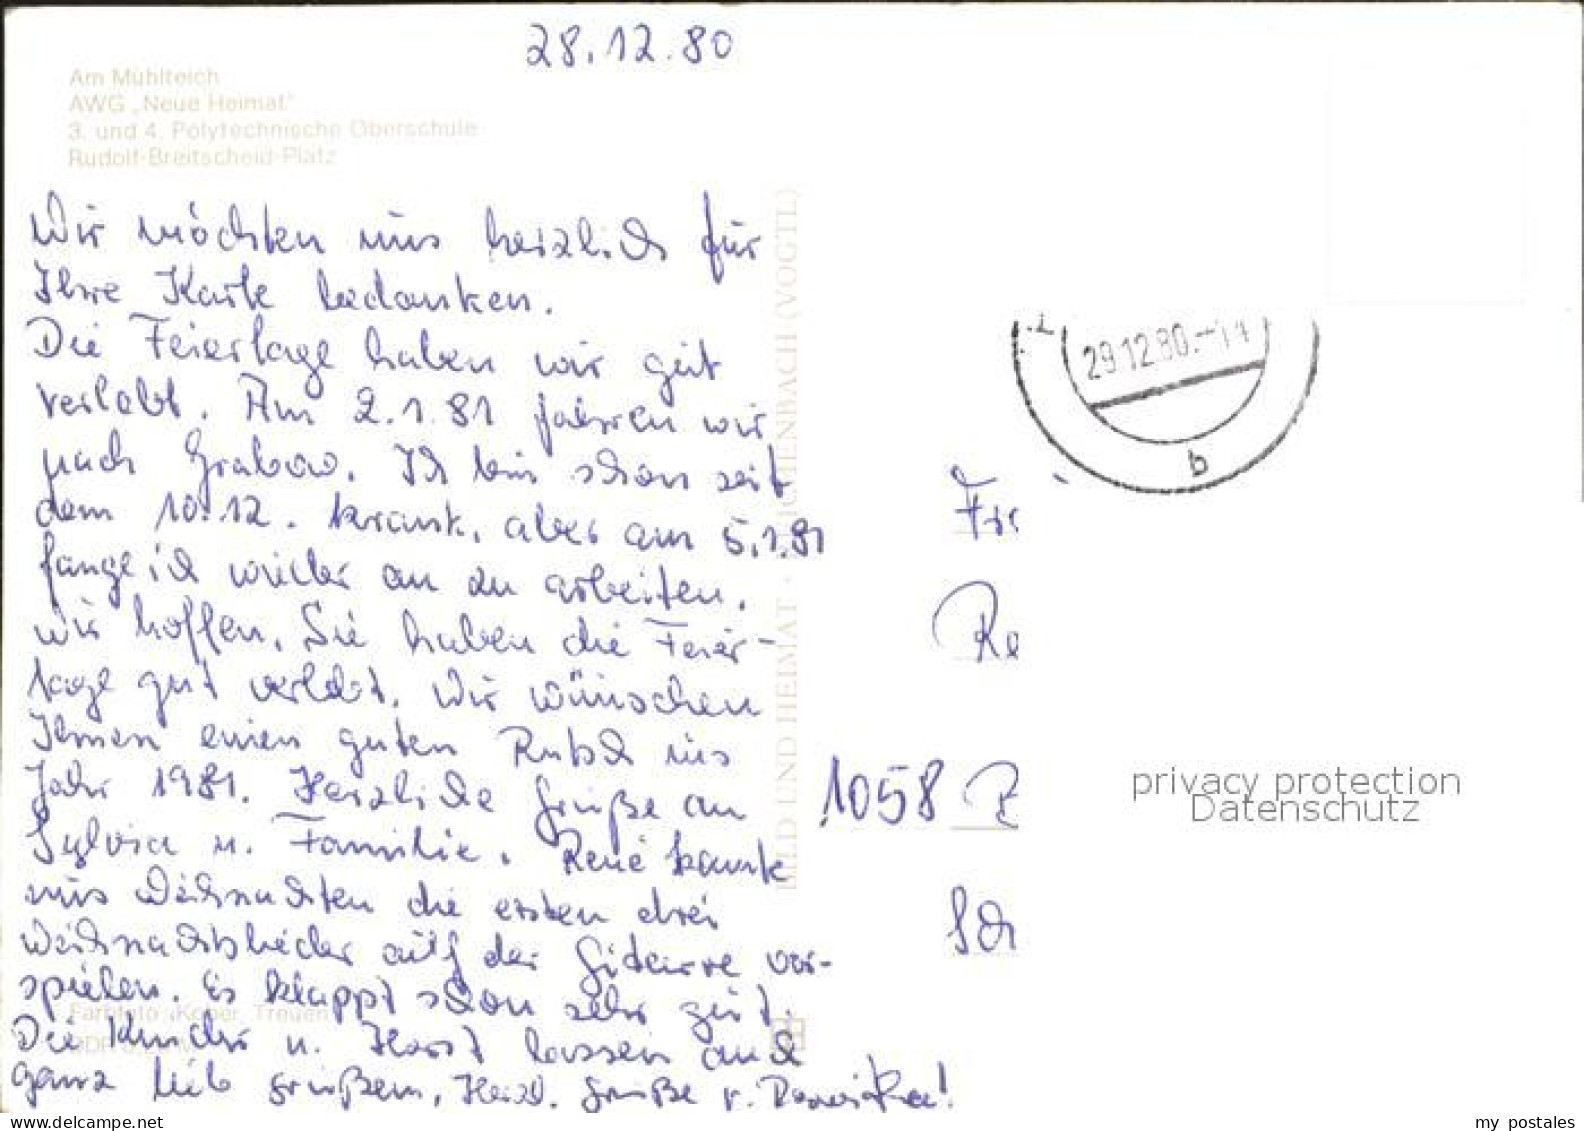 28.12.80
Am Mühlteich
AWG „Neue Heimat"
3. und 4. Polytechnische Oberschule
Rudolf-Breitscheid-Platz
Wir möchten uns herzlich für
Ihre Karte bedanken.
Die Feiertage haben wir gut
verlebt. Am 2.1.81 fahren wir
nach Grabow. Ich bin schon seit
dem 10.12. krank, aber am 5.1.81
fange ich wieder an zu arbeiten.
Wir hoffen, Sie haben die Feier-
tage gut verlebt. Wir wünschen
Ihnen einen guten Rutsch ins
Jahr 1981. Herzliche Grüße an
Sylvia u. Familie. René kannte
uns Weihnachten die ersten drei
Weihnachtslieder auf der Gitarre vor-
spielen. Es klappt schon sehr gut.
Die Kinder u. Horst lassen auch
ganz lieb grüßen. Herzl. Grüße v.
Farbfoto: Treuen
DDR
BILD UND HEIMAT · REICHENBACH (VOGTL)
29.12.80.-14
b
Fr
Re
1058
Sch
privacy protection
Datenschutz
www.delcampe.net
my_postales